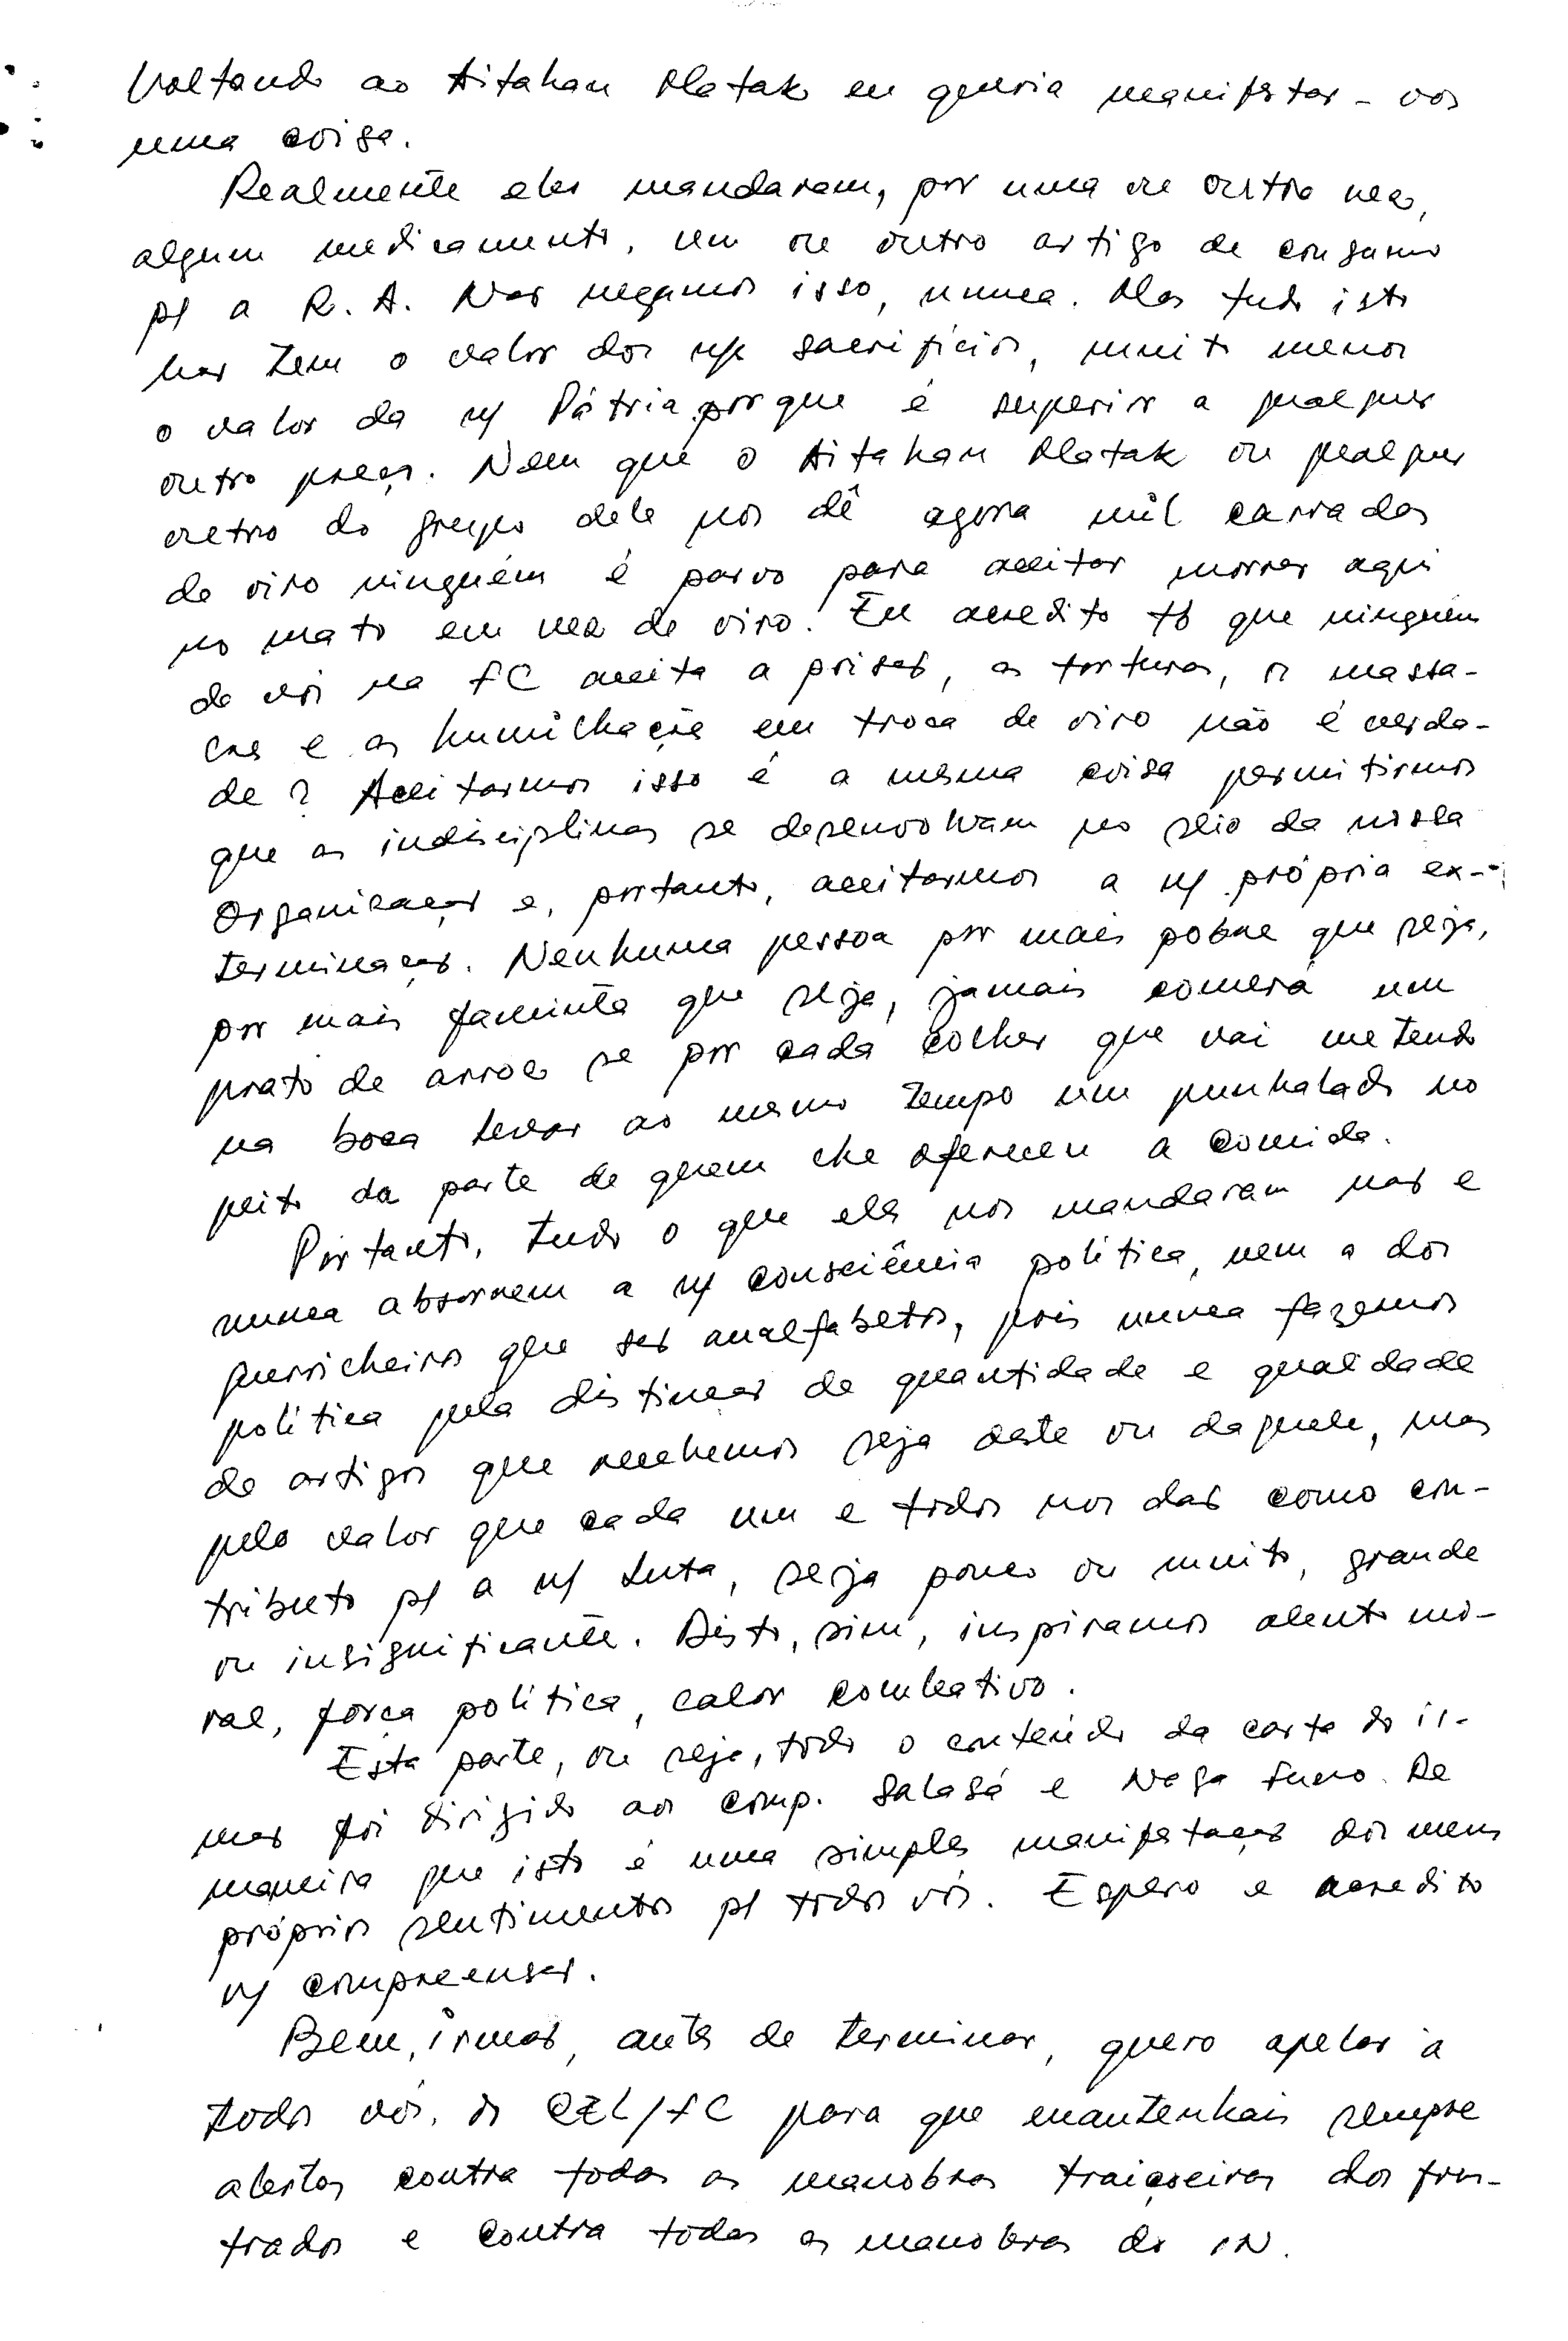 Voltando ao Aitahan Matak eu queria manifestar-vos
uma coisa.
Realmente eles mandaram, por uma ou outra vez,
algum medicamento, um ou outro artigo de consumo
p/ a R.A. Não negamos isso, nunca. Mas tudo isto
não tem o valor dos n/ sacrifícios, muito menos
o valor da n/ Pátria porque é superior a qualquer
outro preço. Nem que o Aitahan Matak ou qualquer
outro do grupo dele nos dê agora mil carradas
de oiro ninguém é parvo para aceitar morrer aqui
no mato em vez de oiro. Eu acredito tb que ninguém
de vós na FC aceita a prisão, as torturas, os massa-
cres e as humilhações em troca de oiro não é verda-
de? Aceitarmos isso é a mesma coisa permitirmos
que as indisciplinas se desenvolvam no seio da nossa
Organização e, portanto, aceitarmos a n/ própria ex-
terminação. Nenhuma pessoa por mais pobre que seja,
por mais faminta que seja, jamais comerá um
prato de arroz se por cada colher que vai metendo
na boca levar ao mesmo tempo um punhalado no
peito da parte de quem lhe oferecen a comida.
Portanto, tudo o que eles nos mandaram não e
nunca absorvem a n/ consciência política, nem a dos
guerrilheiros que são analfabetos, pois nunca fazemos
política pela distinção de quantidade e qualidade
de artigos que recebemos seja deste ou daquele, mas
pelo valor que cada um e todos nos dão como con-
tributo p/ a n/ luta, seja pouco ou muito, grande
ou insignificante. Disto, sim, inspiramos alento mo-
ral, força política, calor combativo.
Esta parte, ou seja, todo o conteúdo da carta do ir-
mão foi dirigido aos comp. Salasá e Nega Furo. De
maneira que isto é uma simples manifestação dos meus
próprios sentimentos p/ todos vós. Espero e acredito
v/ compreensão.
Bem, irmãos, antes de terminar, quero apelar à
todos vós, os CEL/FC para que mantenhais sempre
alertas contra todas as manobras traiçoeiras dos frus-
trados e contra todas as manobras do IN.